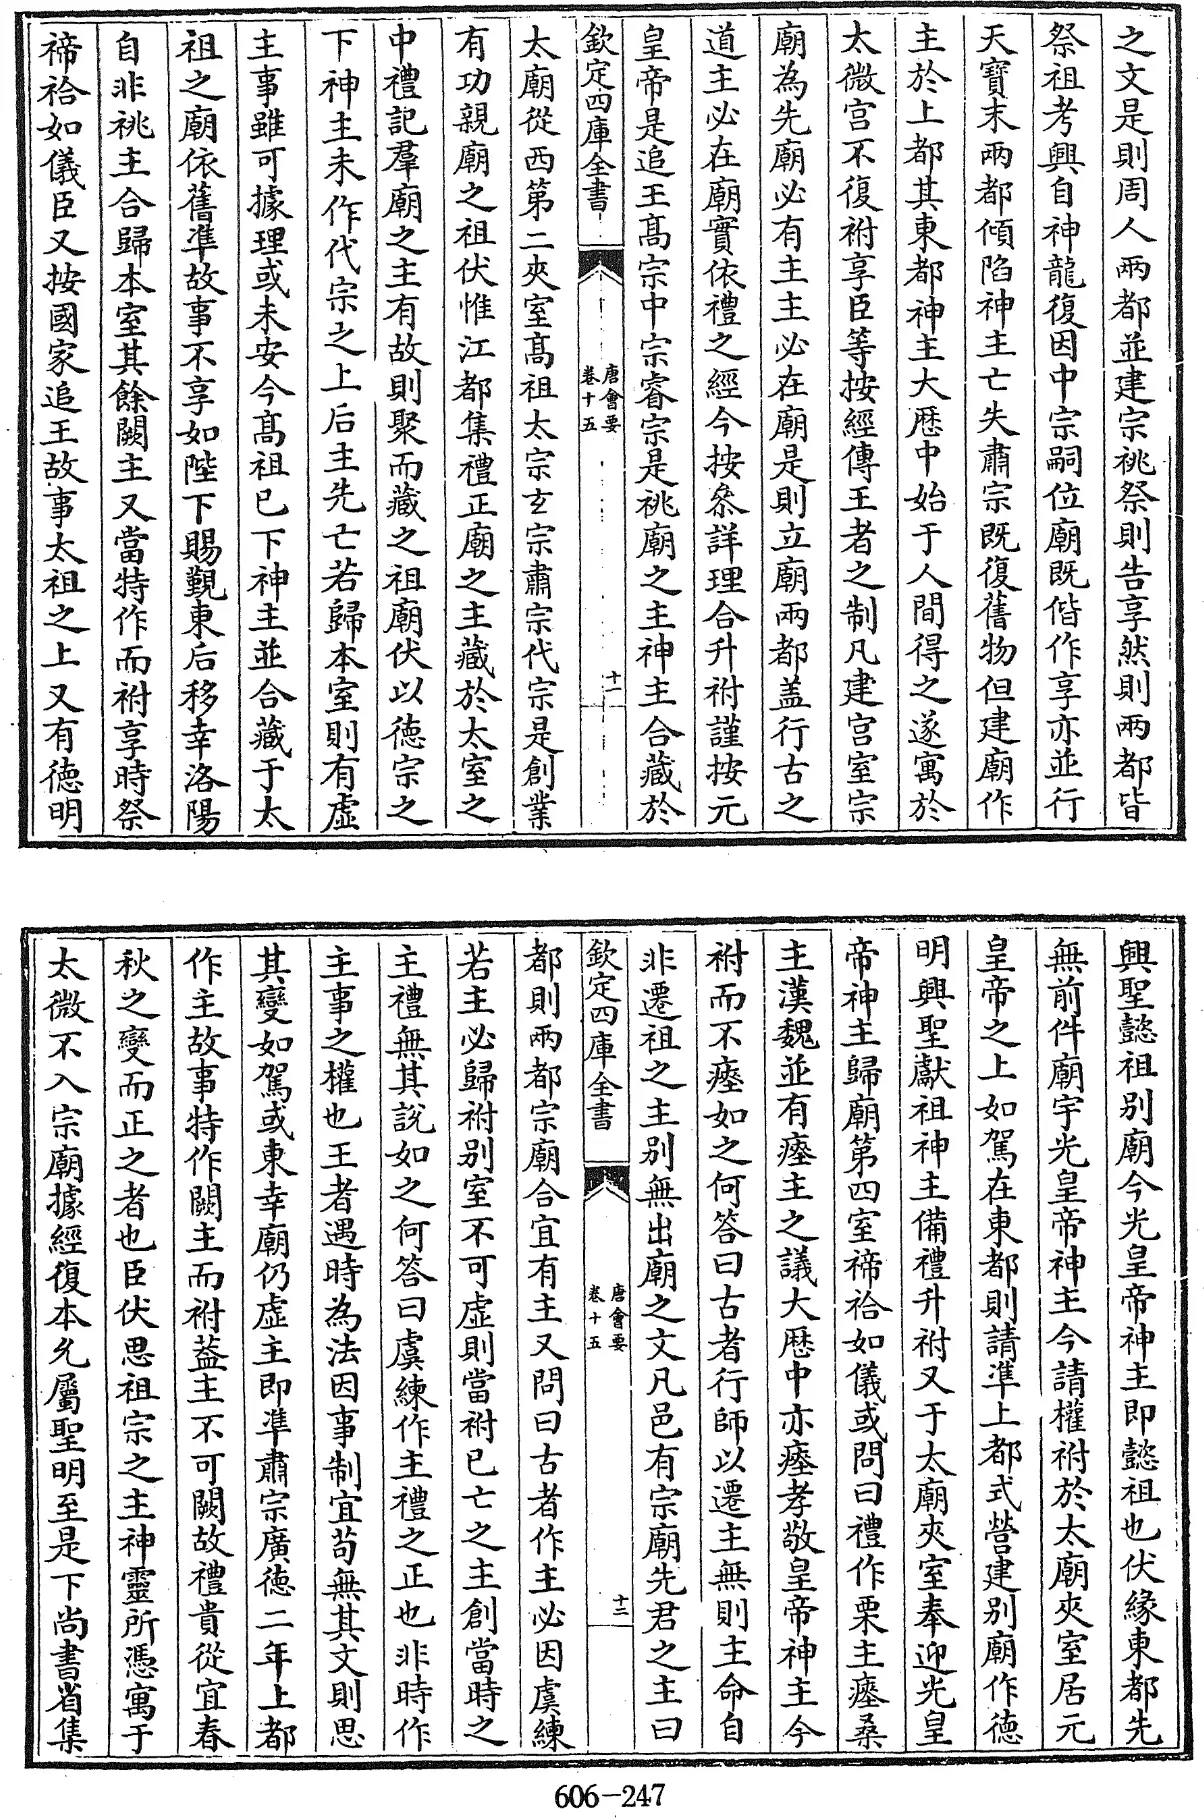 之文是則周人兩都並建宗祧祭則告享然則兩都皆
祭祖考興自神龍復因中宗嗣位廟既偕作享亦並行
天寶末兩都傾陷神主亡失肅宗既復舊物但建廟作
主於上都其東都神主大厯中始于人間得之遂寓於
太微宫不復祔享臣等按經傳王者之制凡建宫室宗
廟為先廟必有主主必在廟是則立廟兩都盖行古之
道主必在廟實依禮之經今按叅詳理合升祔謹按元
皇帝是追王髙宗中宗睿宗是祧廟之主神主合藏於
欽定四庫全書
唐會要
卷十五
十一
太廟從西第二夾室髙祖太宗玄宗肅宗代宗是創業
有功親廟之祖伏惟江都集禮正廟之主藏於太室之
中禮記羣廟之主有故則聚而藏之祖廟伏以德宗之
下神主未作代宗之上后主先亡若歸本室則有虚
主事雖可據理或未安今髙祖已下神主並合藏于太
祖之廟依舊凖故事不享如陛下賜覲東后移幸洛陽
自非祧主合歸本室其餘闕主又當特作而祔享時祭
禘祫如儀臣又按國家追王故事太祖之上又有德明
興聖懿祖别廟今光皇帝神主即懿祖也伏緣東都先
無前件廟宇光皇帝神主今請權祔於太廟夾室居元
皇帝之上如駕在東都則請凖上都式營建别廟作德
明興聖獻祖神主備禮升祔又于太廟夾室奉迎光皇
帝神主歸廟第四室禘祫如儀或問曰禮作栗主瘞桑
主漢魏並有瘞主之議大厯中亦瘞孝敬皇帝神主今
祔而不瘞如之何答曰古者行師以遷主無則主命自
非遷祖之主别無出廟之文凡邑有宗廟先君之主曰
欽定四庫全書
唐會要
卷十五
十二
都則兩都宗廟合宜有主又問曰古者作主必因虞練
若主必歸祔别室不可虚則當祔已亡之主創當時之
主禮無其說如之何答曰虞練作主禮之正也非時作
主事之權也王者遇時為法因事制宜苟無其文則思
其變如駕或東幸廟仍虚主即凖肅宗廣德二年上都
作主故事特作闕主而祔葢主不可闕故禮貴從宜春
秋之變而正之者也臣伏思祖宗之主神靈所憑寓于
太微不入宗廟據經復本允屬聖明至是下尚書省集
606-247